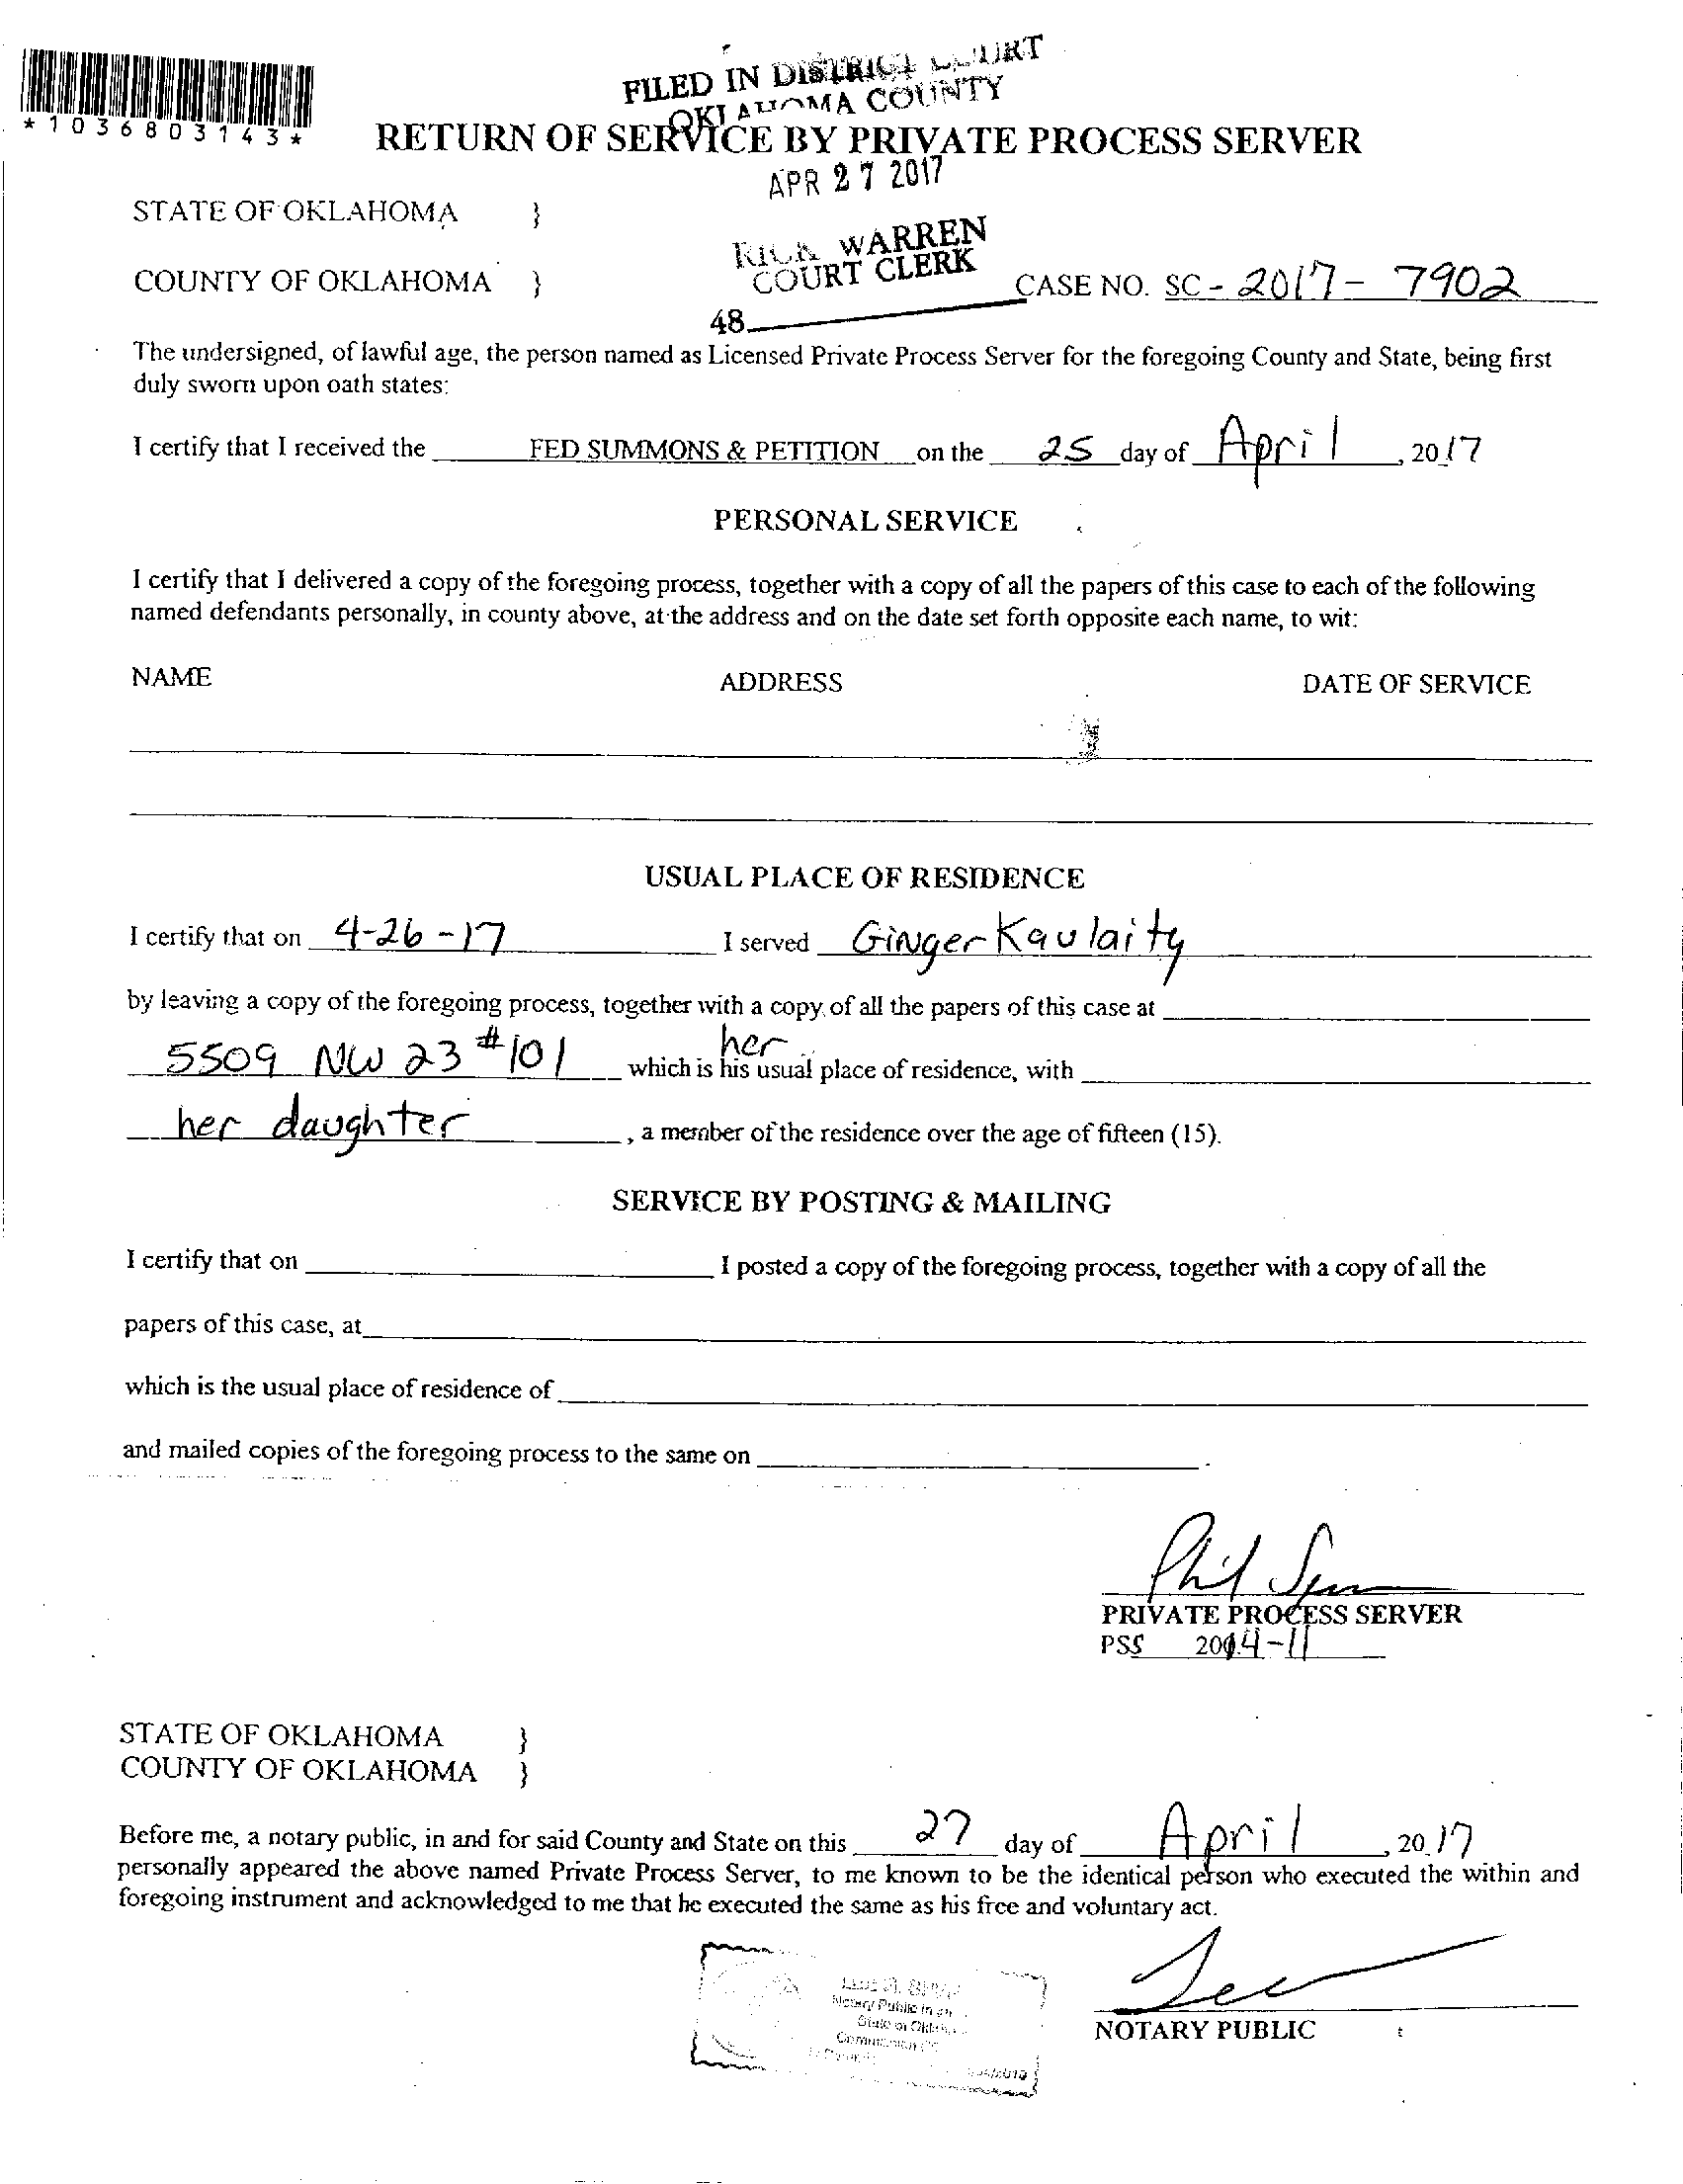 FILED IN DISTRICT COURT
OKLAHOMA COUNTY
*1036803143*
RETURN OF SERVICE BY PRIVATE PROCESS SERVER
APR 27 2017
STATE OF OKLAHOMA }
RICK WARREN
COURT CLERK
COUNTY OF OKLAHOMA } CASE NO. SC - 2017- 7902
48
The undersigned, of lawful age, the person named as Licensed Private Process Server for the foregoing County and State, being first
duly sworn upon oath states:
I certify that I received the FED SUMMONS & PETITION on the 25 day of April, 2017
PERSONAL SERVICE
I certify that I delivered a copy of the foregoing process, together with a copy of all the papers of this case to each of the following
named defendants personally, in county above, at the address and on the date set forth opposite each name, to wit:
NAME ADDRESS DATE OF SERVICE
USUAL PLACE OF RESIDENCE
I certify that on 4-26-17 I served Ginger Kaulaity
by leaving a copy of the foregoing process, together with a copy of all the papers of this case at
her
5509 NW 23 #101 which is his usual place of residence, with
her daughter, a member of the residence over the age of fifteen (15).
SERVICE BY POSTING & MAILING
I certify that on I posted a copy of the foregoing process, together with a copy of all the
papers of this case, at
which is the usual place of residence of
and mailed copies of the foregoing process to the same on .
Phil
PRIVATE PROCESS SERVER
PSS 2014-11
STATE OF OKLAHOMA }
COUNTY OF OKLAHOMA }
Before me, a notary public, in and for said County and State on this 27 day of April, 2017
personally appeared the above named Private Process Server, to me known to be the identical person who executed the within and
foregoing instrument and acknowledged to me that he executed the same as his free and voluntary act.
Notary Public in
State of
NOTARY PUBLIC